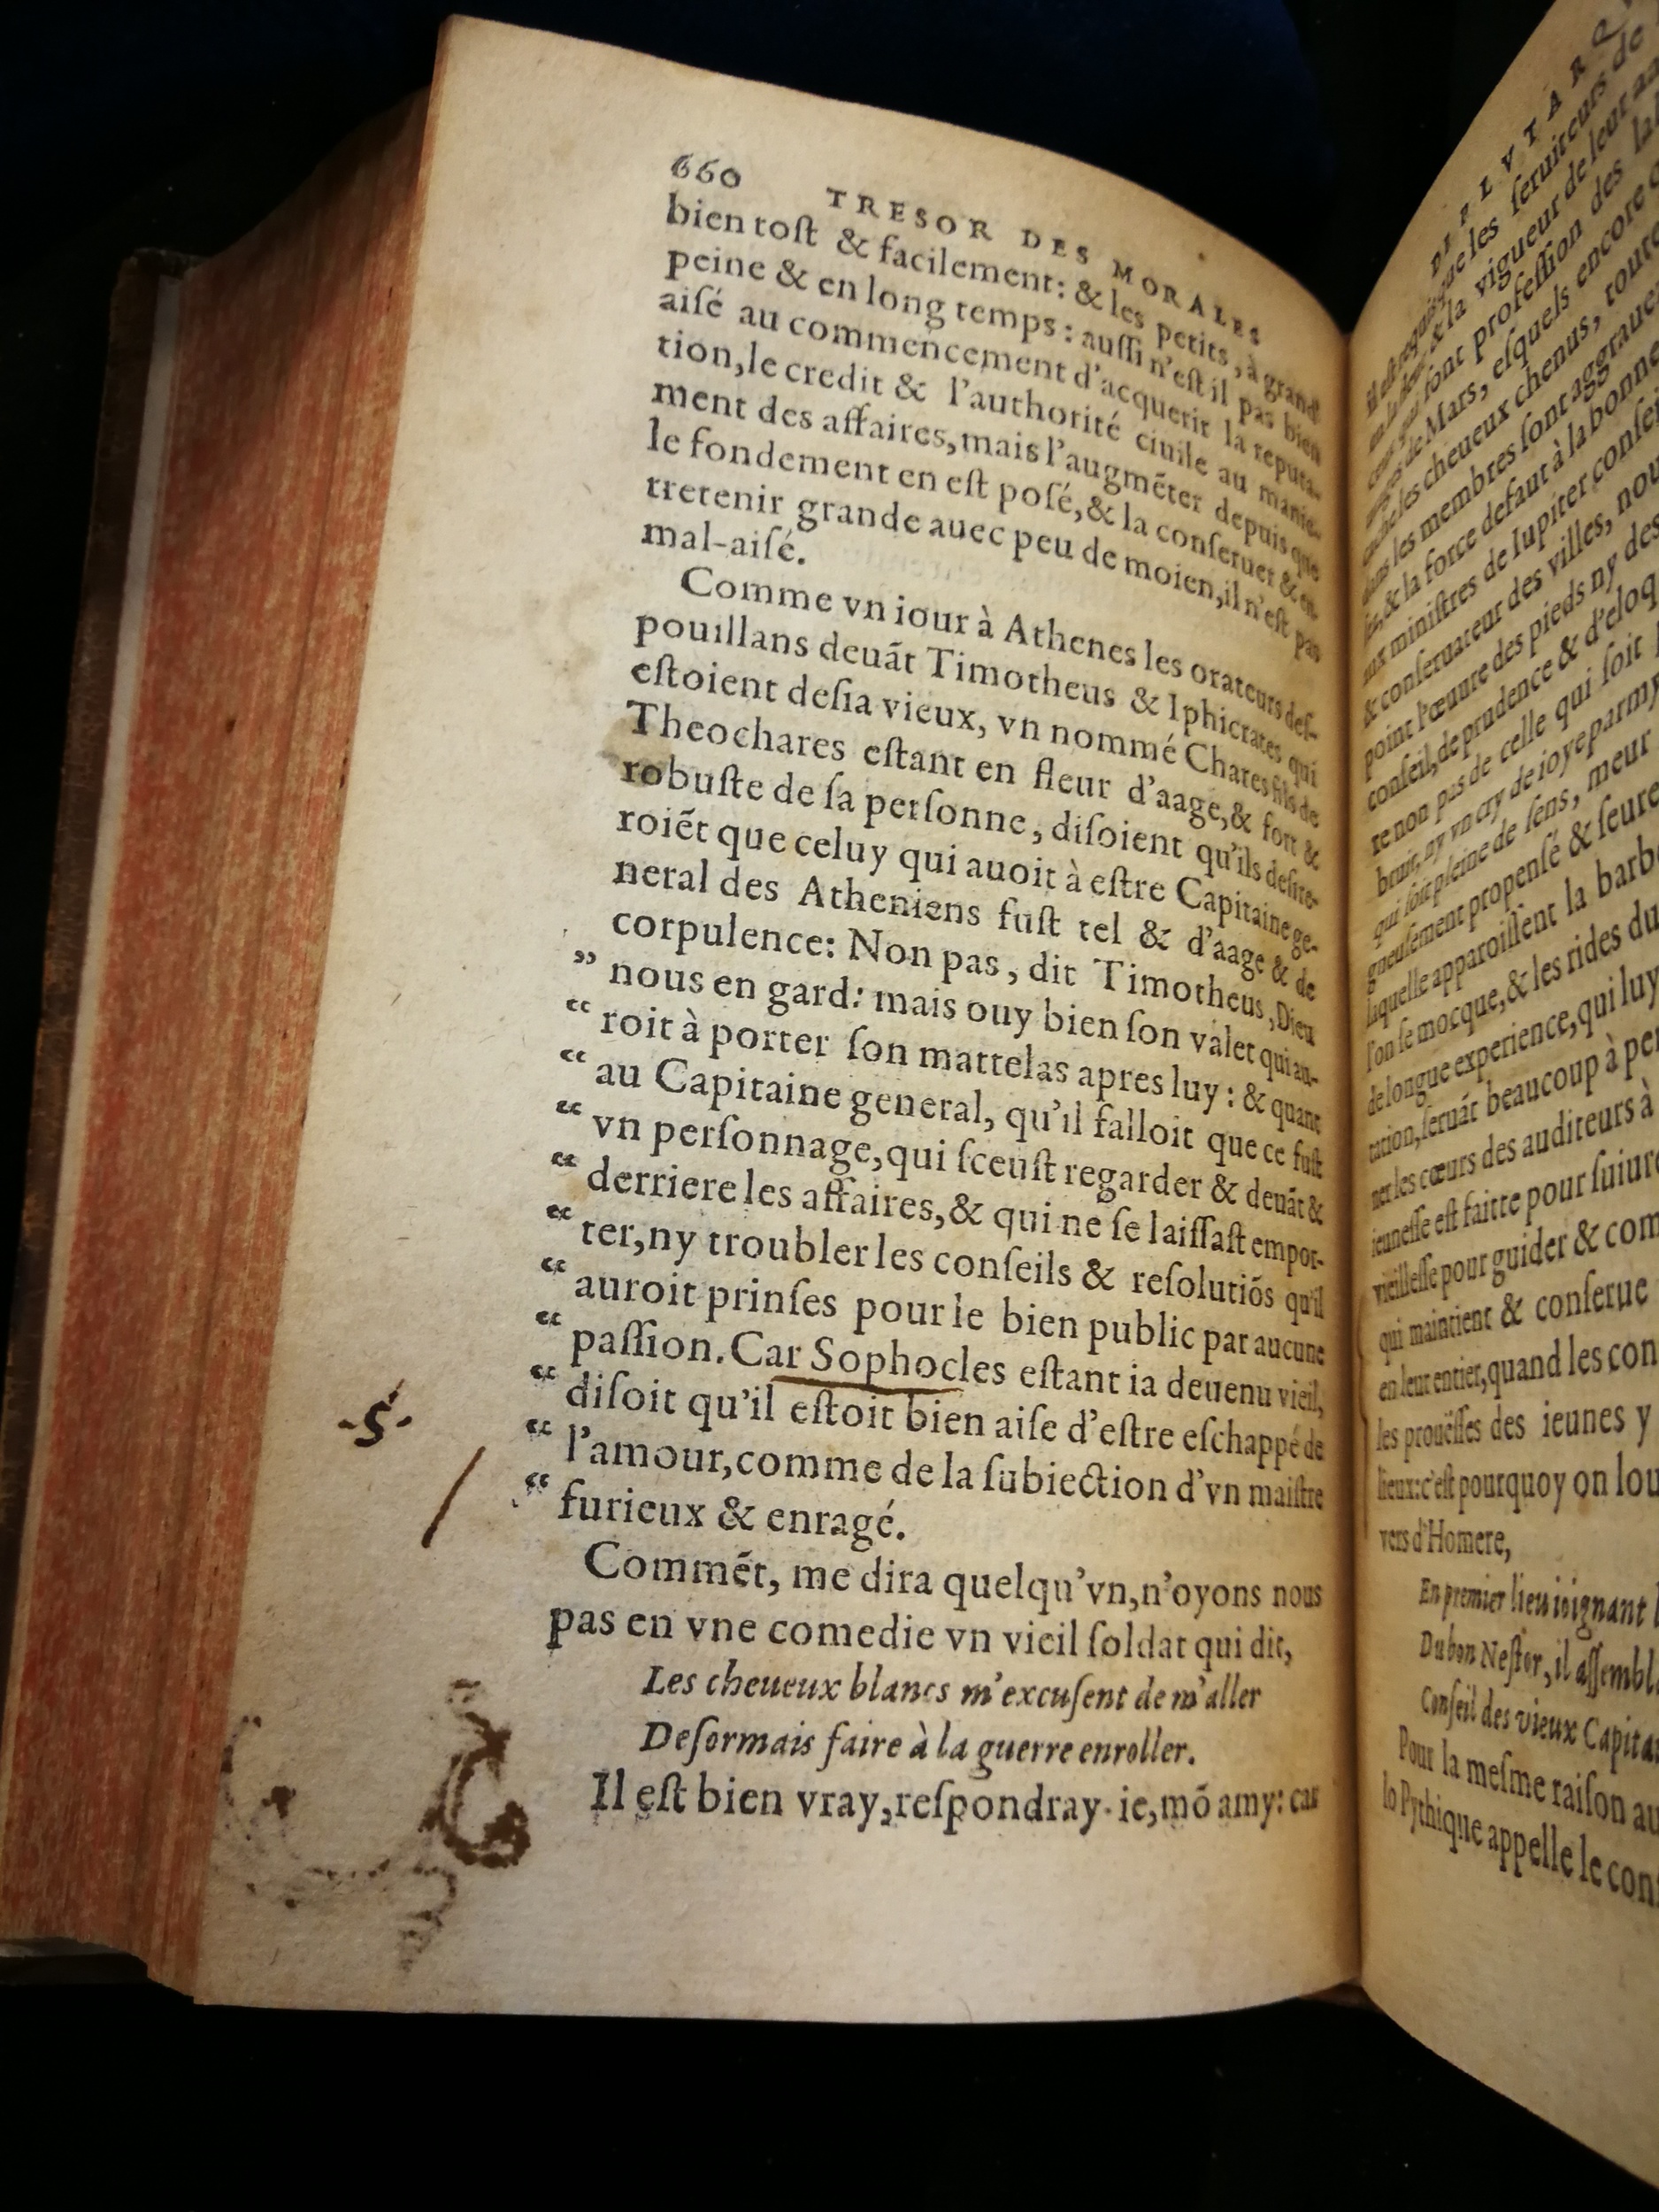 660 TRESOR DES MORALES
bien tost & facilement: & les petits, à grand
peine & en long temps: aussi n'est il pas bien
aisé au commencement d'acquerir la reputa-
tion, le credit & l'authorité ciuile au manie-
ment des affaires, mais l'augmẽter depuis que
le fondement en est posé, & la conseruer & en-
tretenir grande auec peu de moien, il n'est pas
mal-aisé.
Comme vn iour à Athenes les orateurs des-
pouillans deuãt Timotheus & Iphicrates qui
estoient desia vieux, vn nommé Chares fils de
Theochares estant en fleur d'aage, & fort &
robuste de sa personne, disoient qu'ils desire-
roiẽt que celuy qui auoit à estre Capitaine ge-
neral des Atheniens fust tel & d'aage & de
corpulence: Non pas, dit Timotheus, Dieu
” nous en gard: mais ouy bien son valet qui au-
“ roit à porter son mattelas apres luy: & quant
“ au Capitaine general, qu'il falloit que ce fust
“ vn personnage, qui sceust regarder & deuãt &
“ derriere les affaires, & qui ne se laissast empor-
“ ter, ny troubler les conseils & resolutiõs qu'il
“ auroit prinses pour le bien public par aucune
“ passion. Car Sophocles estant ia deuenu vieil,
“ disoit qu'il estoit bien aise d'estre eschappé de
“ l'amour, comme de la subiection d'vn maistre
“ furieux & enragé.
-S-
Commẽt, me dira quelqu'vn, n'oyons nous
pas en vne comedie vn vieil soldat qui dit,
Les cheueux blancs m'excusent de m'aller
Desormais faire à la guerre enroller.
Il est bien vray, respondray-ie, mõ amy: car
DE PLVTARQ
que les seruiteurs de
& la vigueur de leur
font profession des
de Mars, esquels encore
les cheueux chenus, toute
les membres sont aggraue
& la force defaut à la bonne
ministres de Iupiter consei
& conseruateur des villes, nou
point l'œuure des pieds ny des
conseil, de prudence & d'eloq
re non pas de celle qui soit
bruit, ny vn cry de ioye parmy
qui soit pleine de sens, meur
gneusement propensé & seure
laquelle apparoissent la barb
l'on se mocque, & les rides du
de longue experience, qui luy
ration, seruãt beaucoup à per
ner les cœurs des auditeurs à
ieunesse est faitte pour suiure
vieillesse pour guider & com
qui maintient & conserue
en leur entier, quand les con
les prouësses des ieunes y
lieux: c'est pourquoy on lou
vers d'Homere,
En premier lieu ioignant
Du bon Nestor, il assembl
Conseil des vieux Capita
Pour la mesme raison au
lo Pythique appelle le con